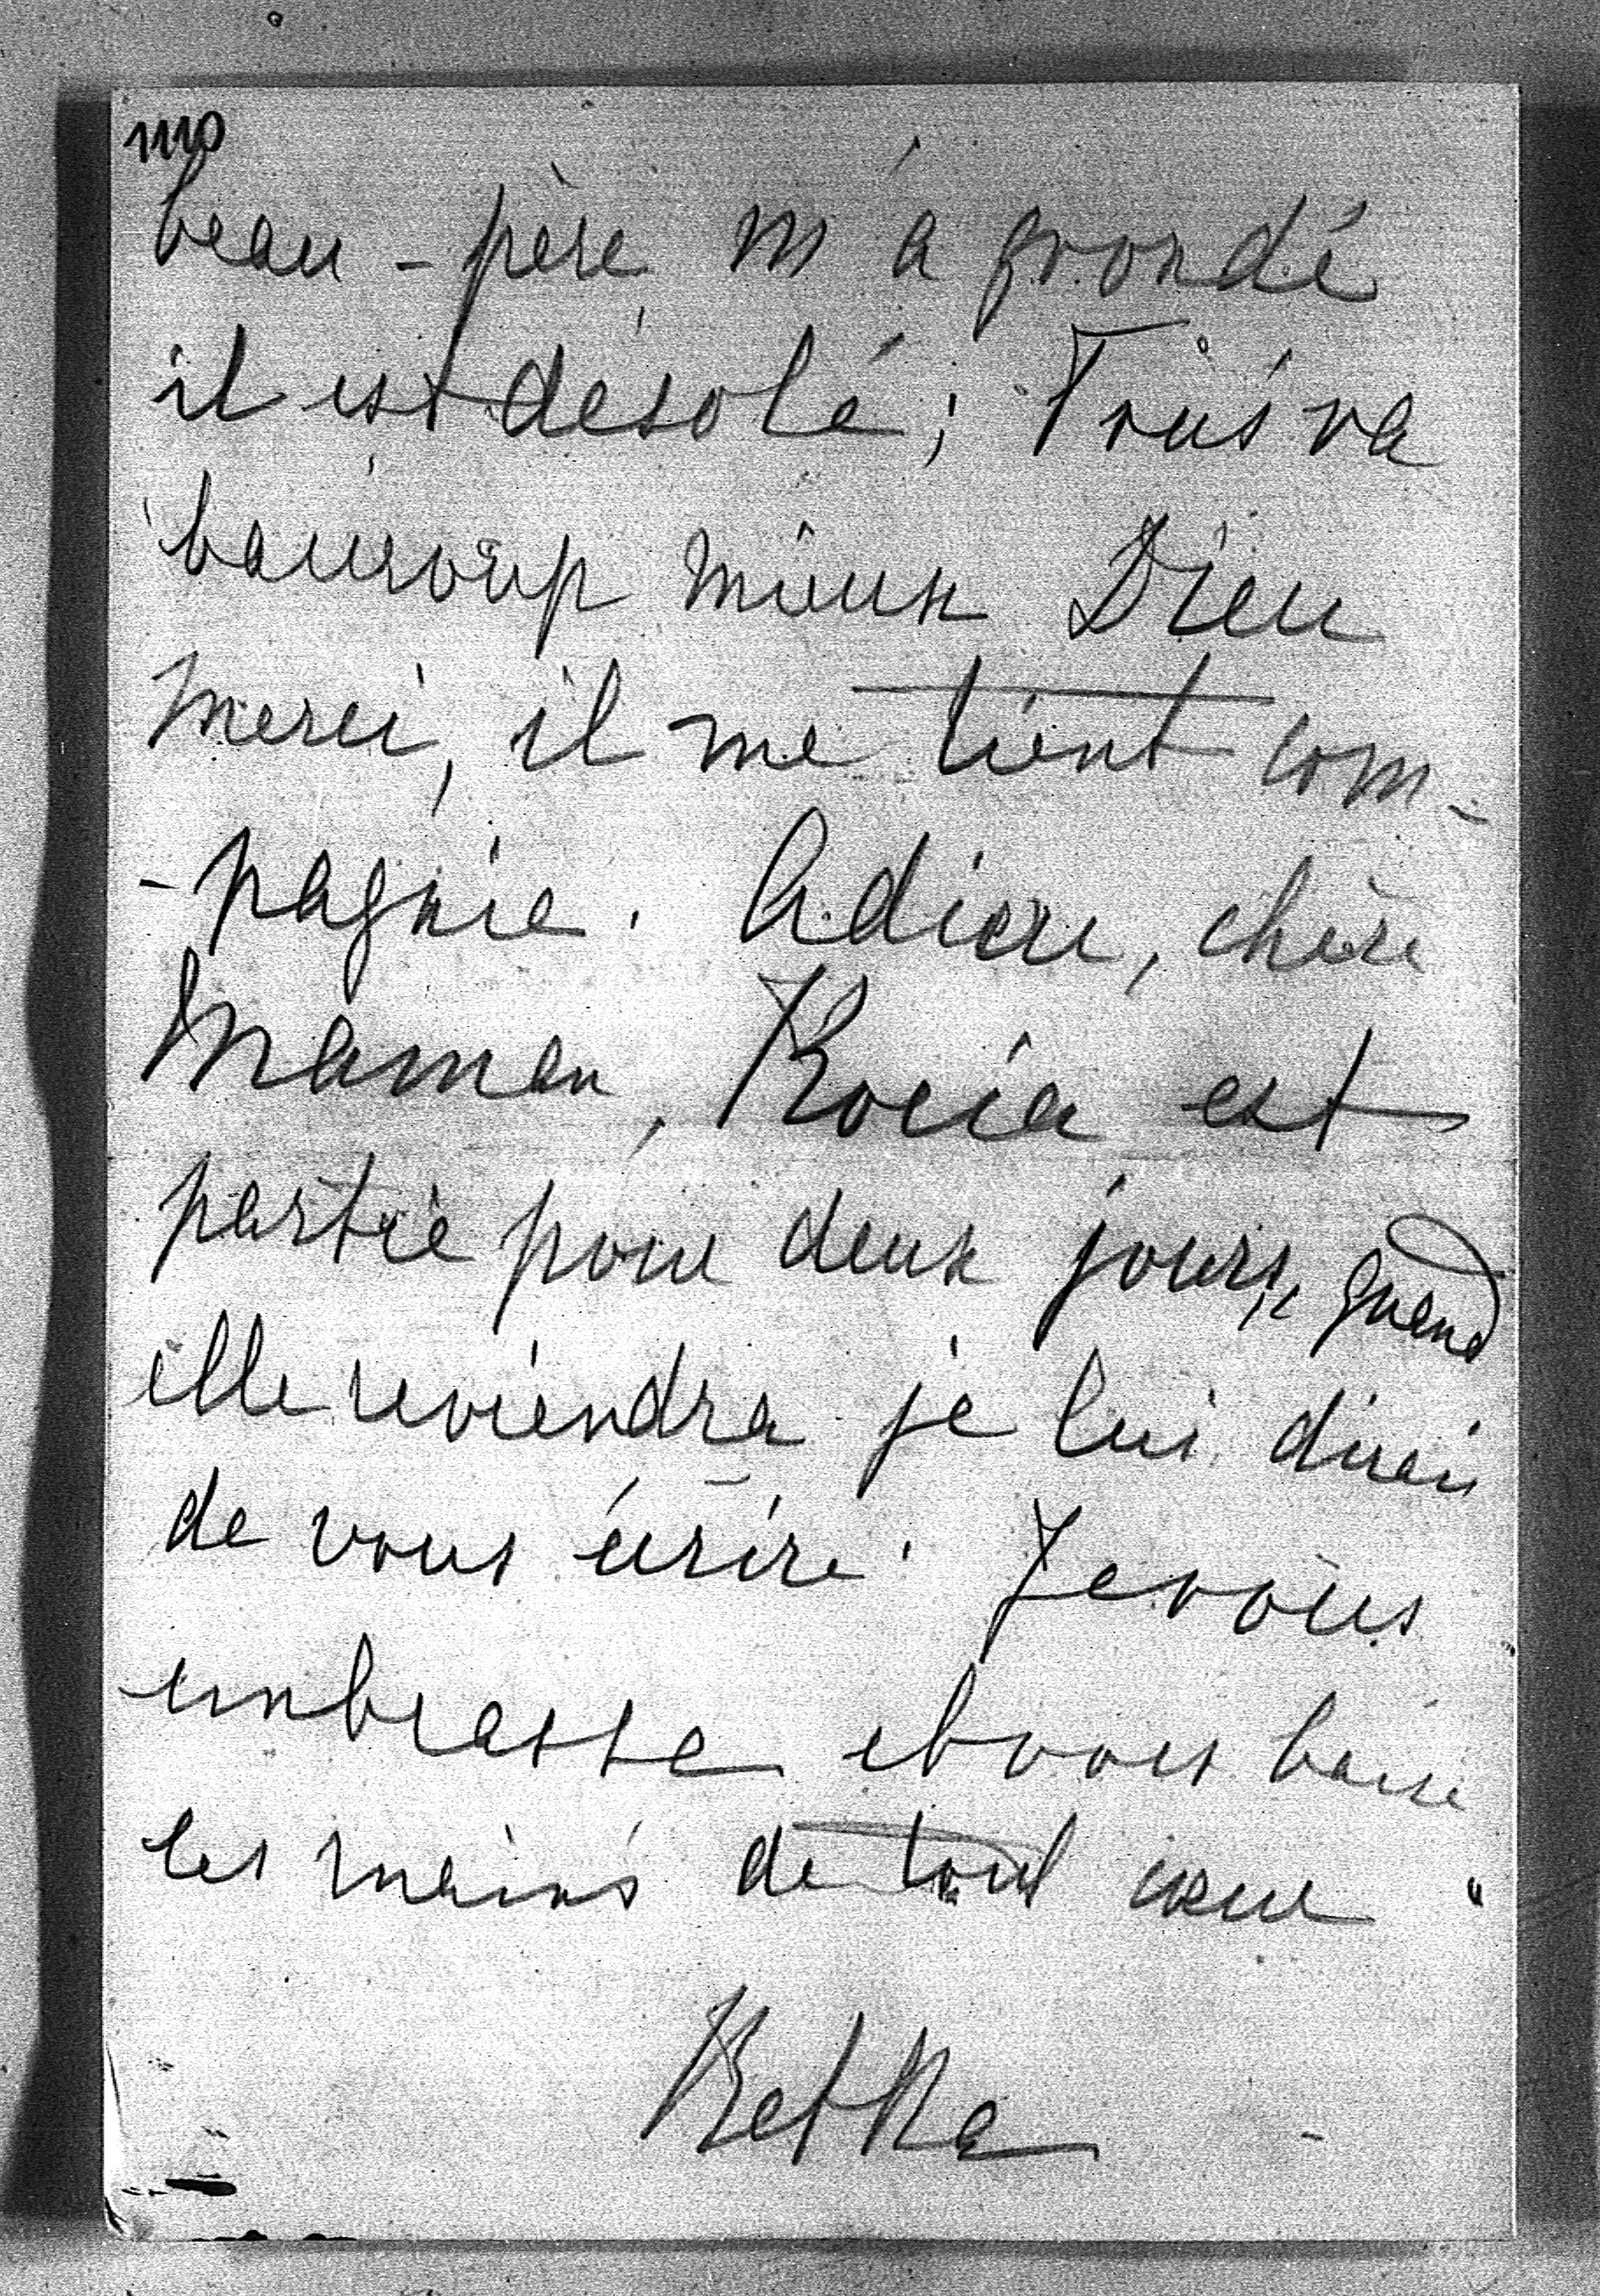 1110
beau-père m'a grondé
il est désolé; Trus va
beaucoup mieux Dieu
merci, il me tient com-
-pagnie. Adieu, chère
Maman, Rocia est
partie pour deux jours, quand
elle reviendra je lui dirai
de vous écrire. Je vous
embrasse et vous baise
les mains de tout cœur
Retka